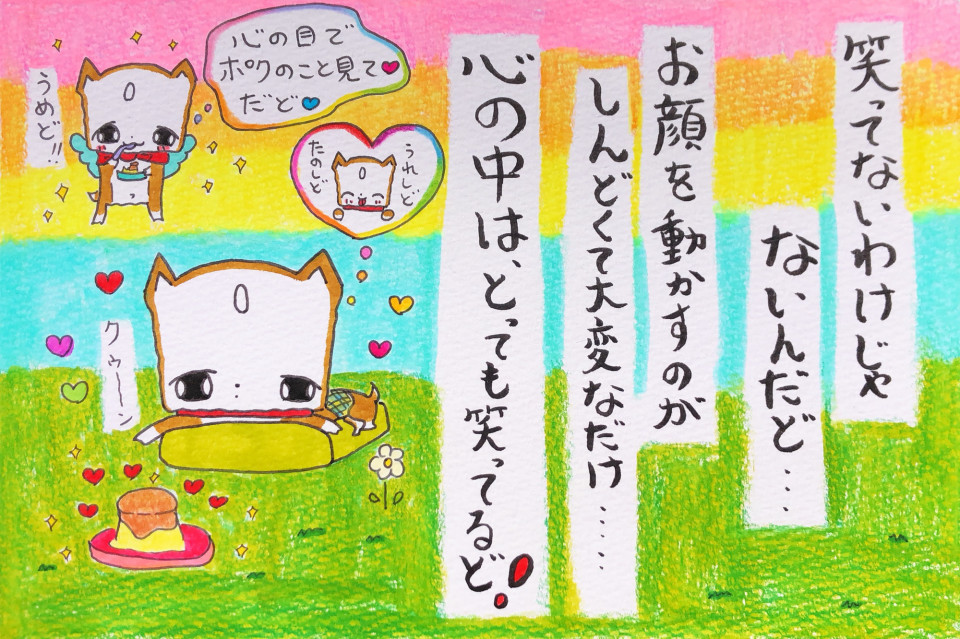 笑ってないわけじゃ
ないんだど…
お顔を動かすのが
しんどくて大変なだけ……
心の中は、とっても笑ってるど!
心の目で
ポクのこと見て♥
だど♥
うめど!!
うれしど
たのしど
クゥ〜〜ン